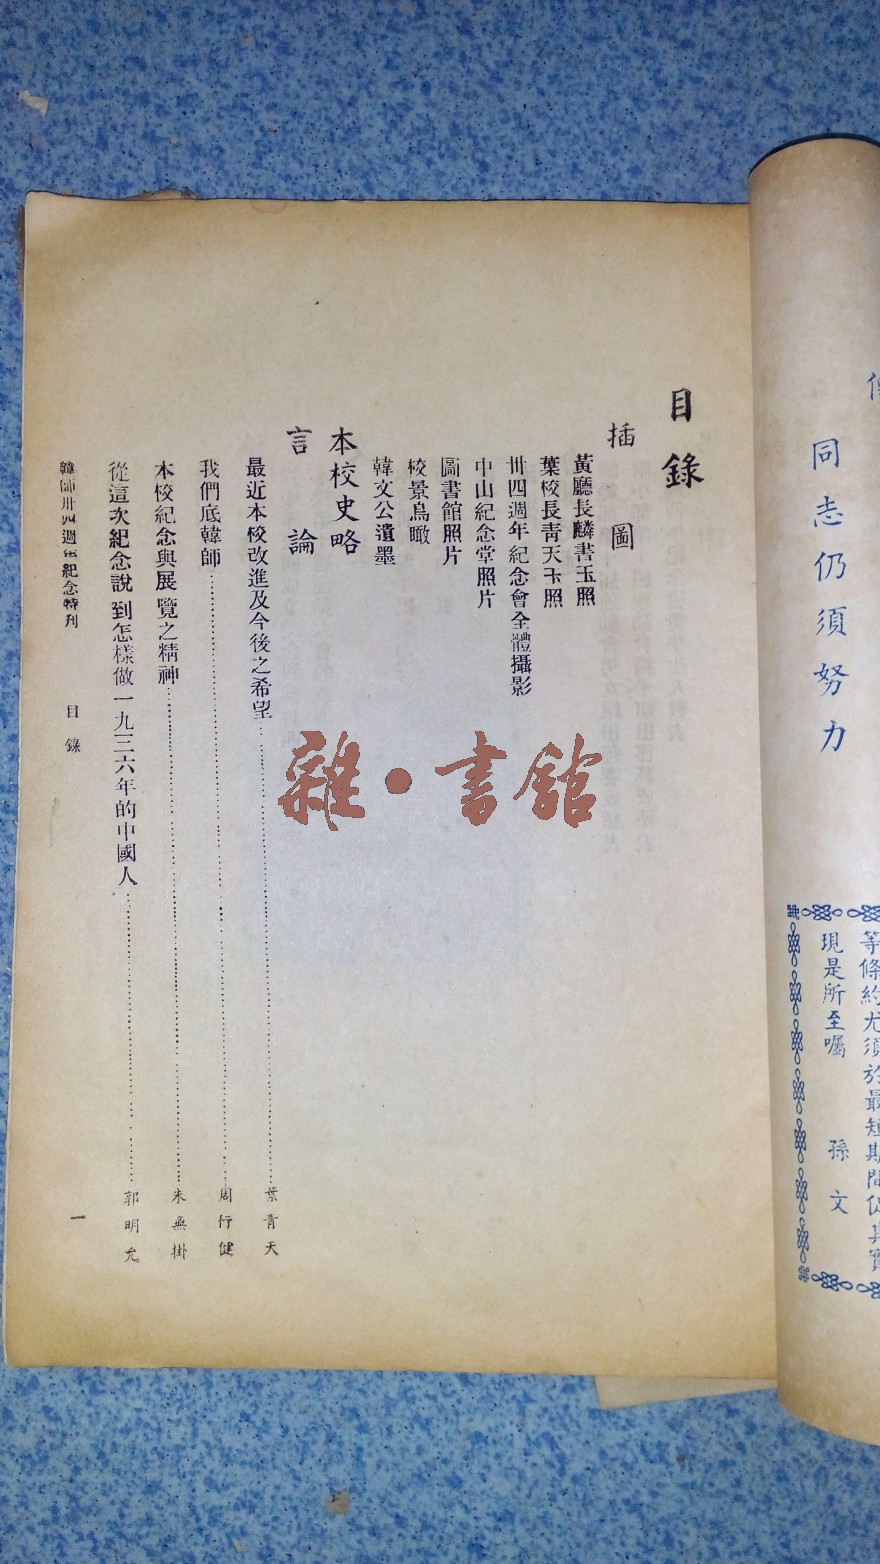 目錄
插圖
黃廳長麟書玉照
葉校長青天玉照
卅四週年紀念會全體攝影
中山紀念堂照片
圖書館照片
校景鳥瞰
韓文公遺墨
本校史略
言論
最近本校改進及今後之希望……葉青天
我們底韓師……周行健
本校紀念與展覽之精神……朱無掛
從這次紀念說到怎樣做一九三六年的中國人……郭明允
韓師卅四週年紀念特刊 目錄 一
同志仍須努力
等條約尤須於最短期間促其實
現是所至囑 孫文
雜·書館